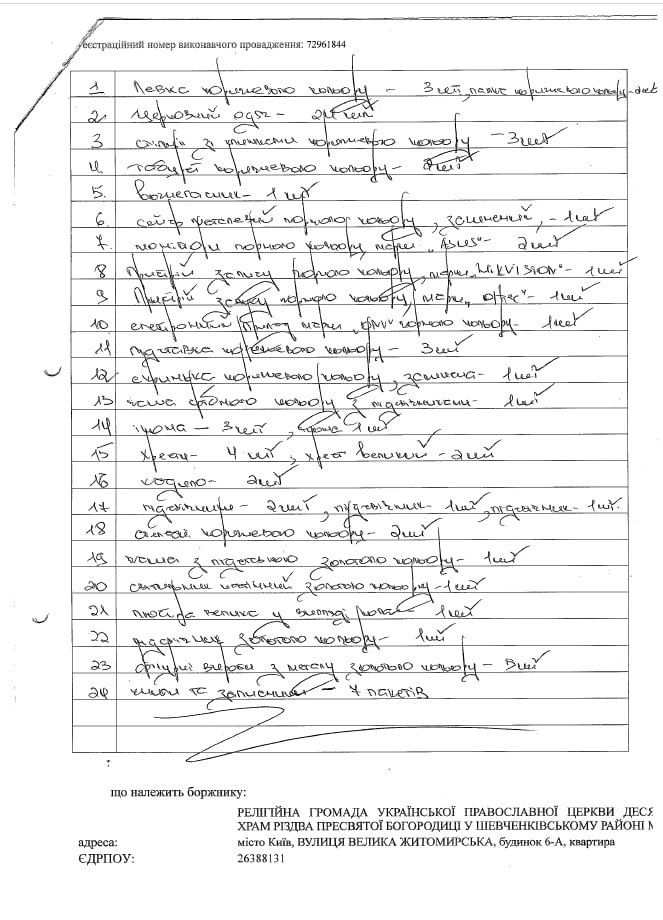 еєстраційний номер виконавчого провадження: 72961844
1 Лавка коричневого кольору – 3 шт, лавка коричневого кольору – 2шт
2. Церковний одяг – 2шт
3 коричневого кольору – 3шт
4. коричневого кольору –
5. Вогнегасник – 1 шт
6. сейф металевий чорного кольору, зачинений, – 1шт
7. монітори чорного кольору, марки "ASUS" – 2шт
8 Пристрій запису чорного кольору, марки "HIKVISION" – 1шт
9 Пристрій чорного кольору, марки – 1шт
10. чорного кольору – 1шт
11 підставка коричневого кольору – 3шт
12 скринька коричневого кольору, – 1шт
13 чаша срібного кольору з підсвічниками – 1шт
14 ікона – 3шт, 1шт
15 хрест – 4 шт, хрест великий – 2шт
16 кадило – 2шт
17 підсвічник – 2шт, підсвічник – 1шт, підсвічник – 1шт.
18 коричневого кольору – 2шт
19 чаша з золотого кольору – 1шт
20 світильник золотого кольору – 1шт
21 велика у вигляді – 1шт
22 підсвічник золотого кольору – 1шт
23 вироби з металу золотого кольору – 5шт
24 книги та записники – 7 пакетів
що належить боржнику:
РЕЛІГІЙНА ГРОМАДА УКРАЇНСЬКОЇ ПРАВОСЛАВНОЇ ЦЕРКВИ ДЕСЯ
ХРАМ РІЗДВА ПРЕСВЯТОЇ БОГОРОДИЦІ У ШЕВЧЕНКІВСЬКОМУ РАЙОНІ М
адреса: місто Київ, ВУЛИЦЯ ВЕЛИКА ЖИТОМИРСЬКА, будинок 6-А, квартира
ЄДРПОУ: 26388131